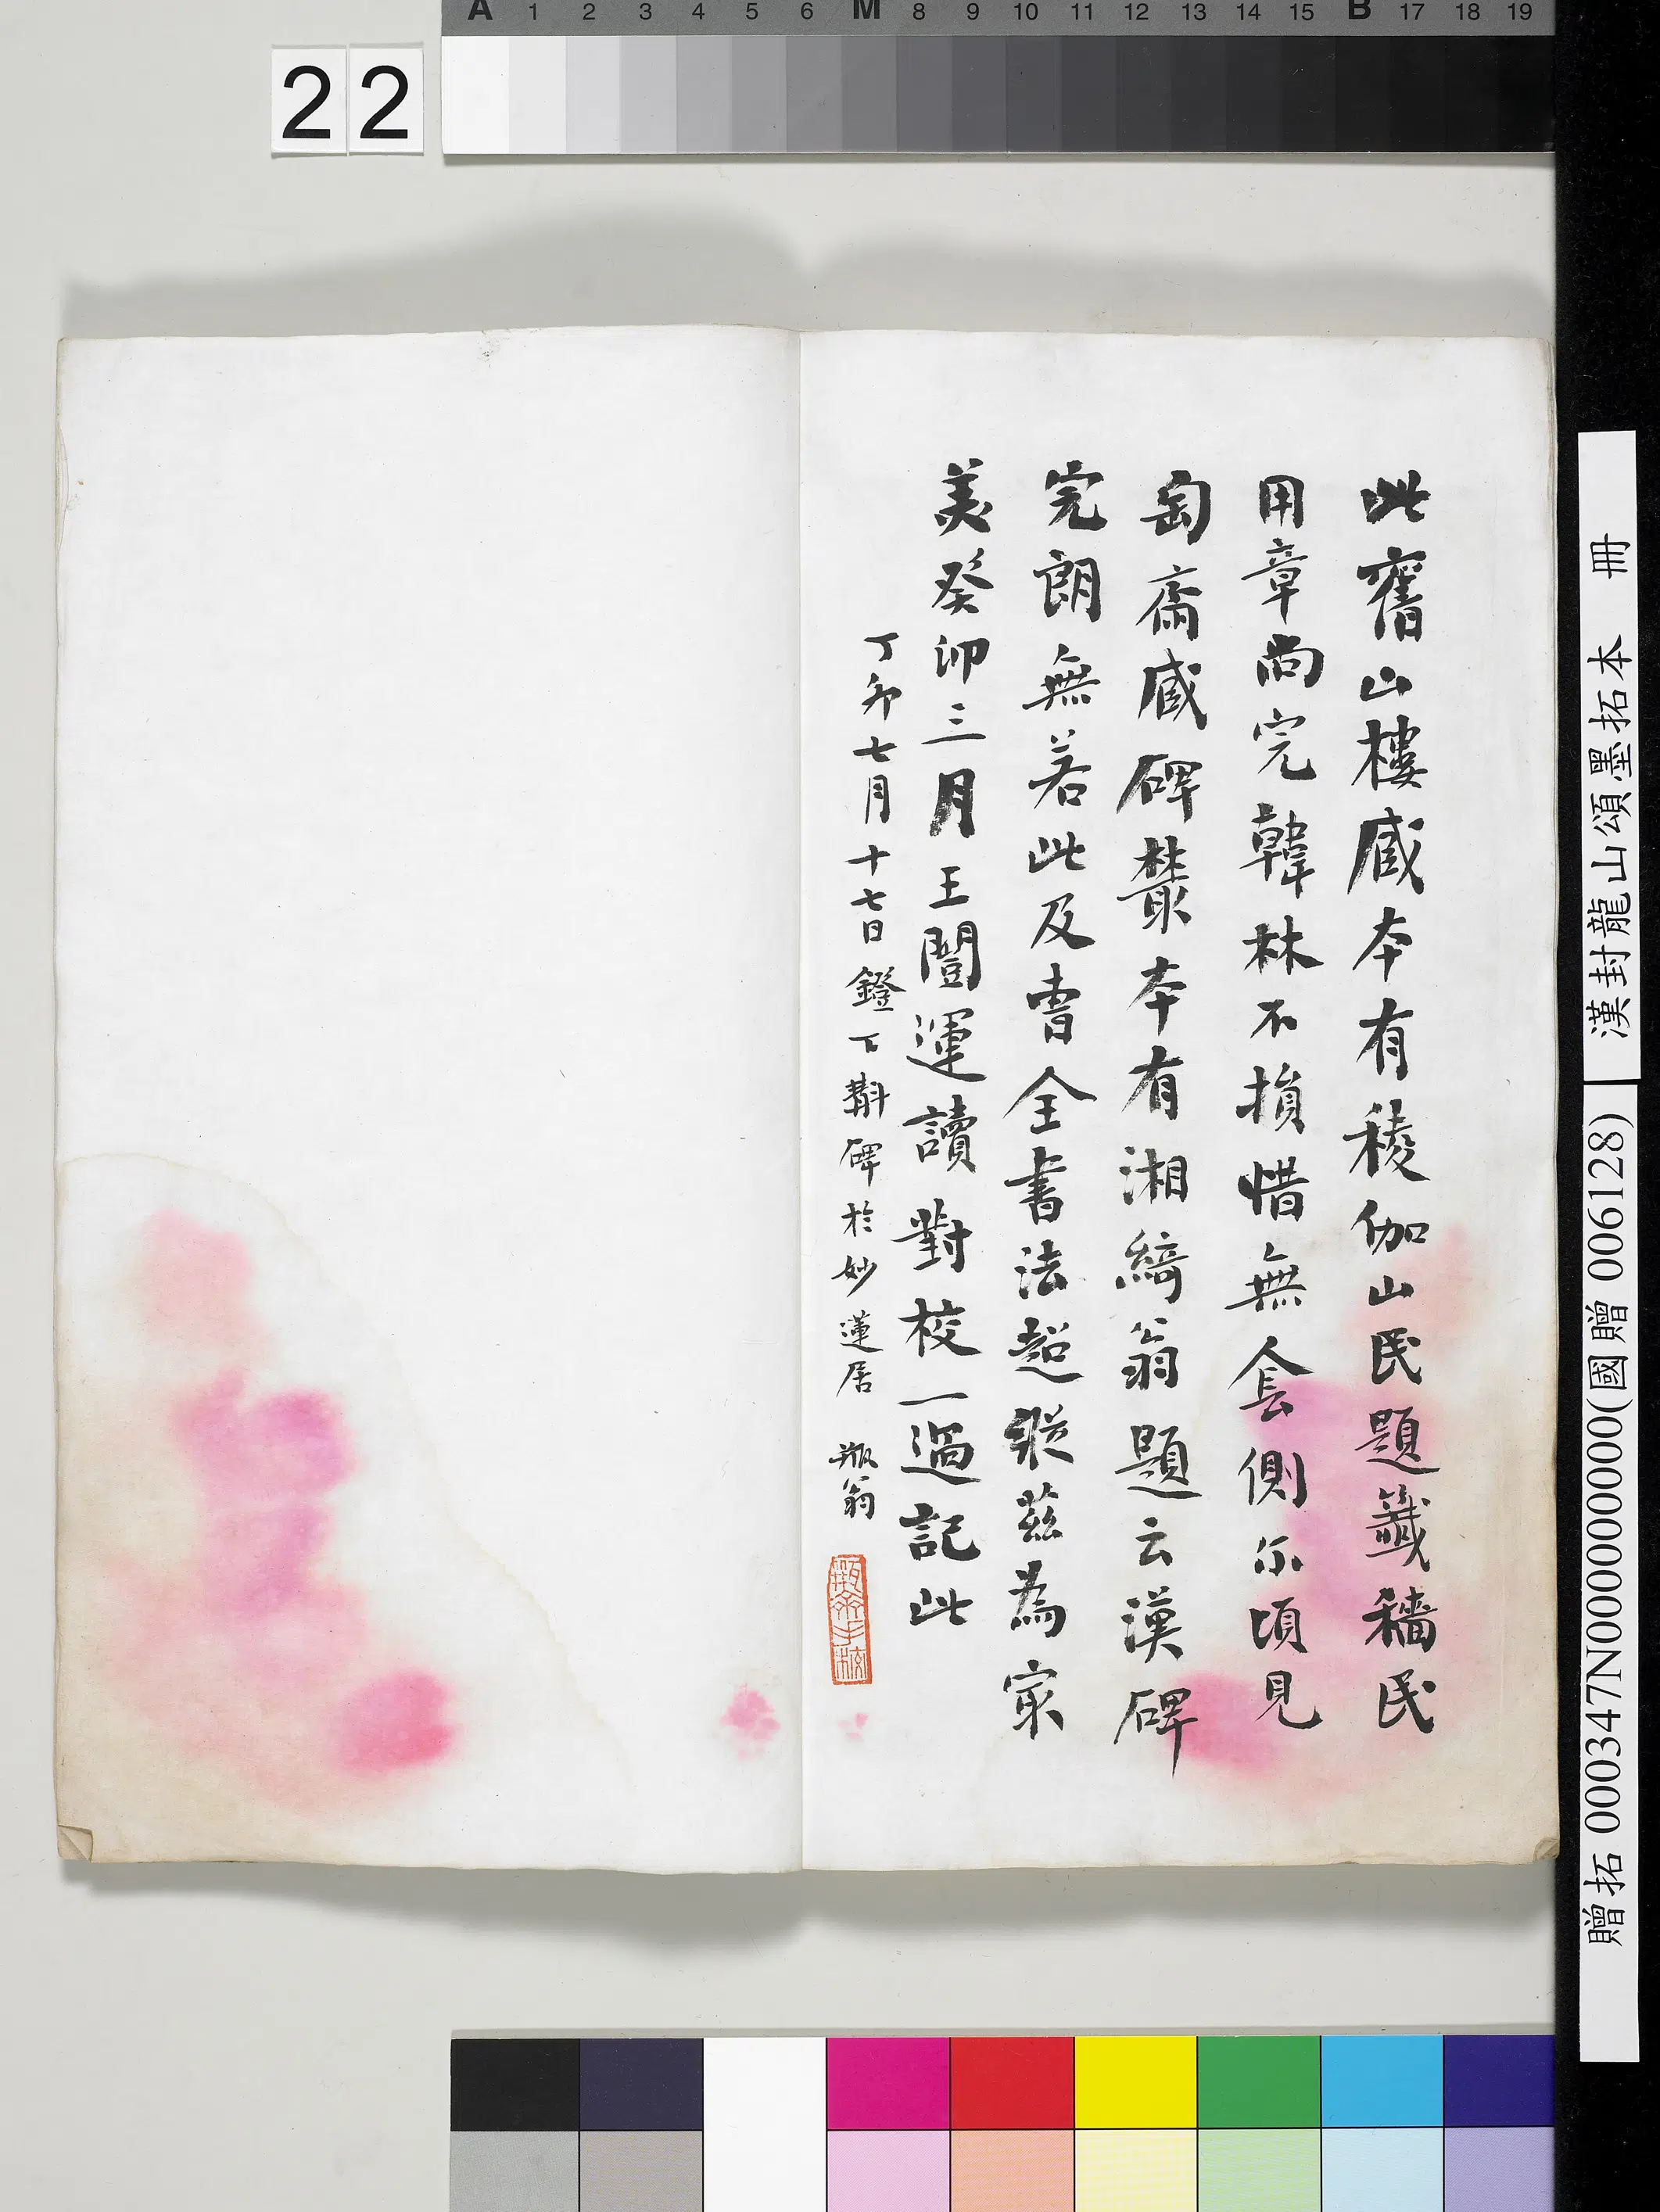 此舊山樓臧本有稜伽山民題籤穡民
用章尚完韓林不損惜無侌側尒頃見
匋齋臧碑叢本有湘綺翁題云漢碑
完朗無若此及曺全書法超縱茲為冣
美癸卯三月王闓運讀對校一過記此
丁卯七月十七日鐙下斠碑於妙蓮居 瓶翁
22
A 1 2 3 4 5 6 M 8 9 10 11 12 13 14 15 B 17 18 19
漢封龍山頌墨拓本 冊
贈拓 000347N000000000(國贈 006128)